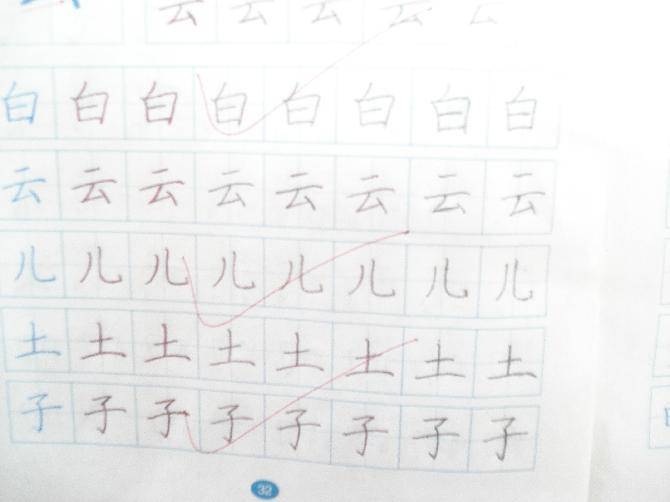 云 云 云 云 云
白 白 白 白 白 白 白 白
云 云 云 云 云 云 云 云
儿 儿 儿 儿 儿 儿 儿 儿
土 土 土 土 土 土 土 土
子 子 子 子 子 子 子 子
32